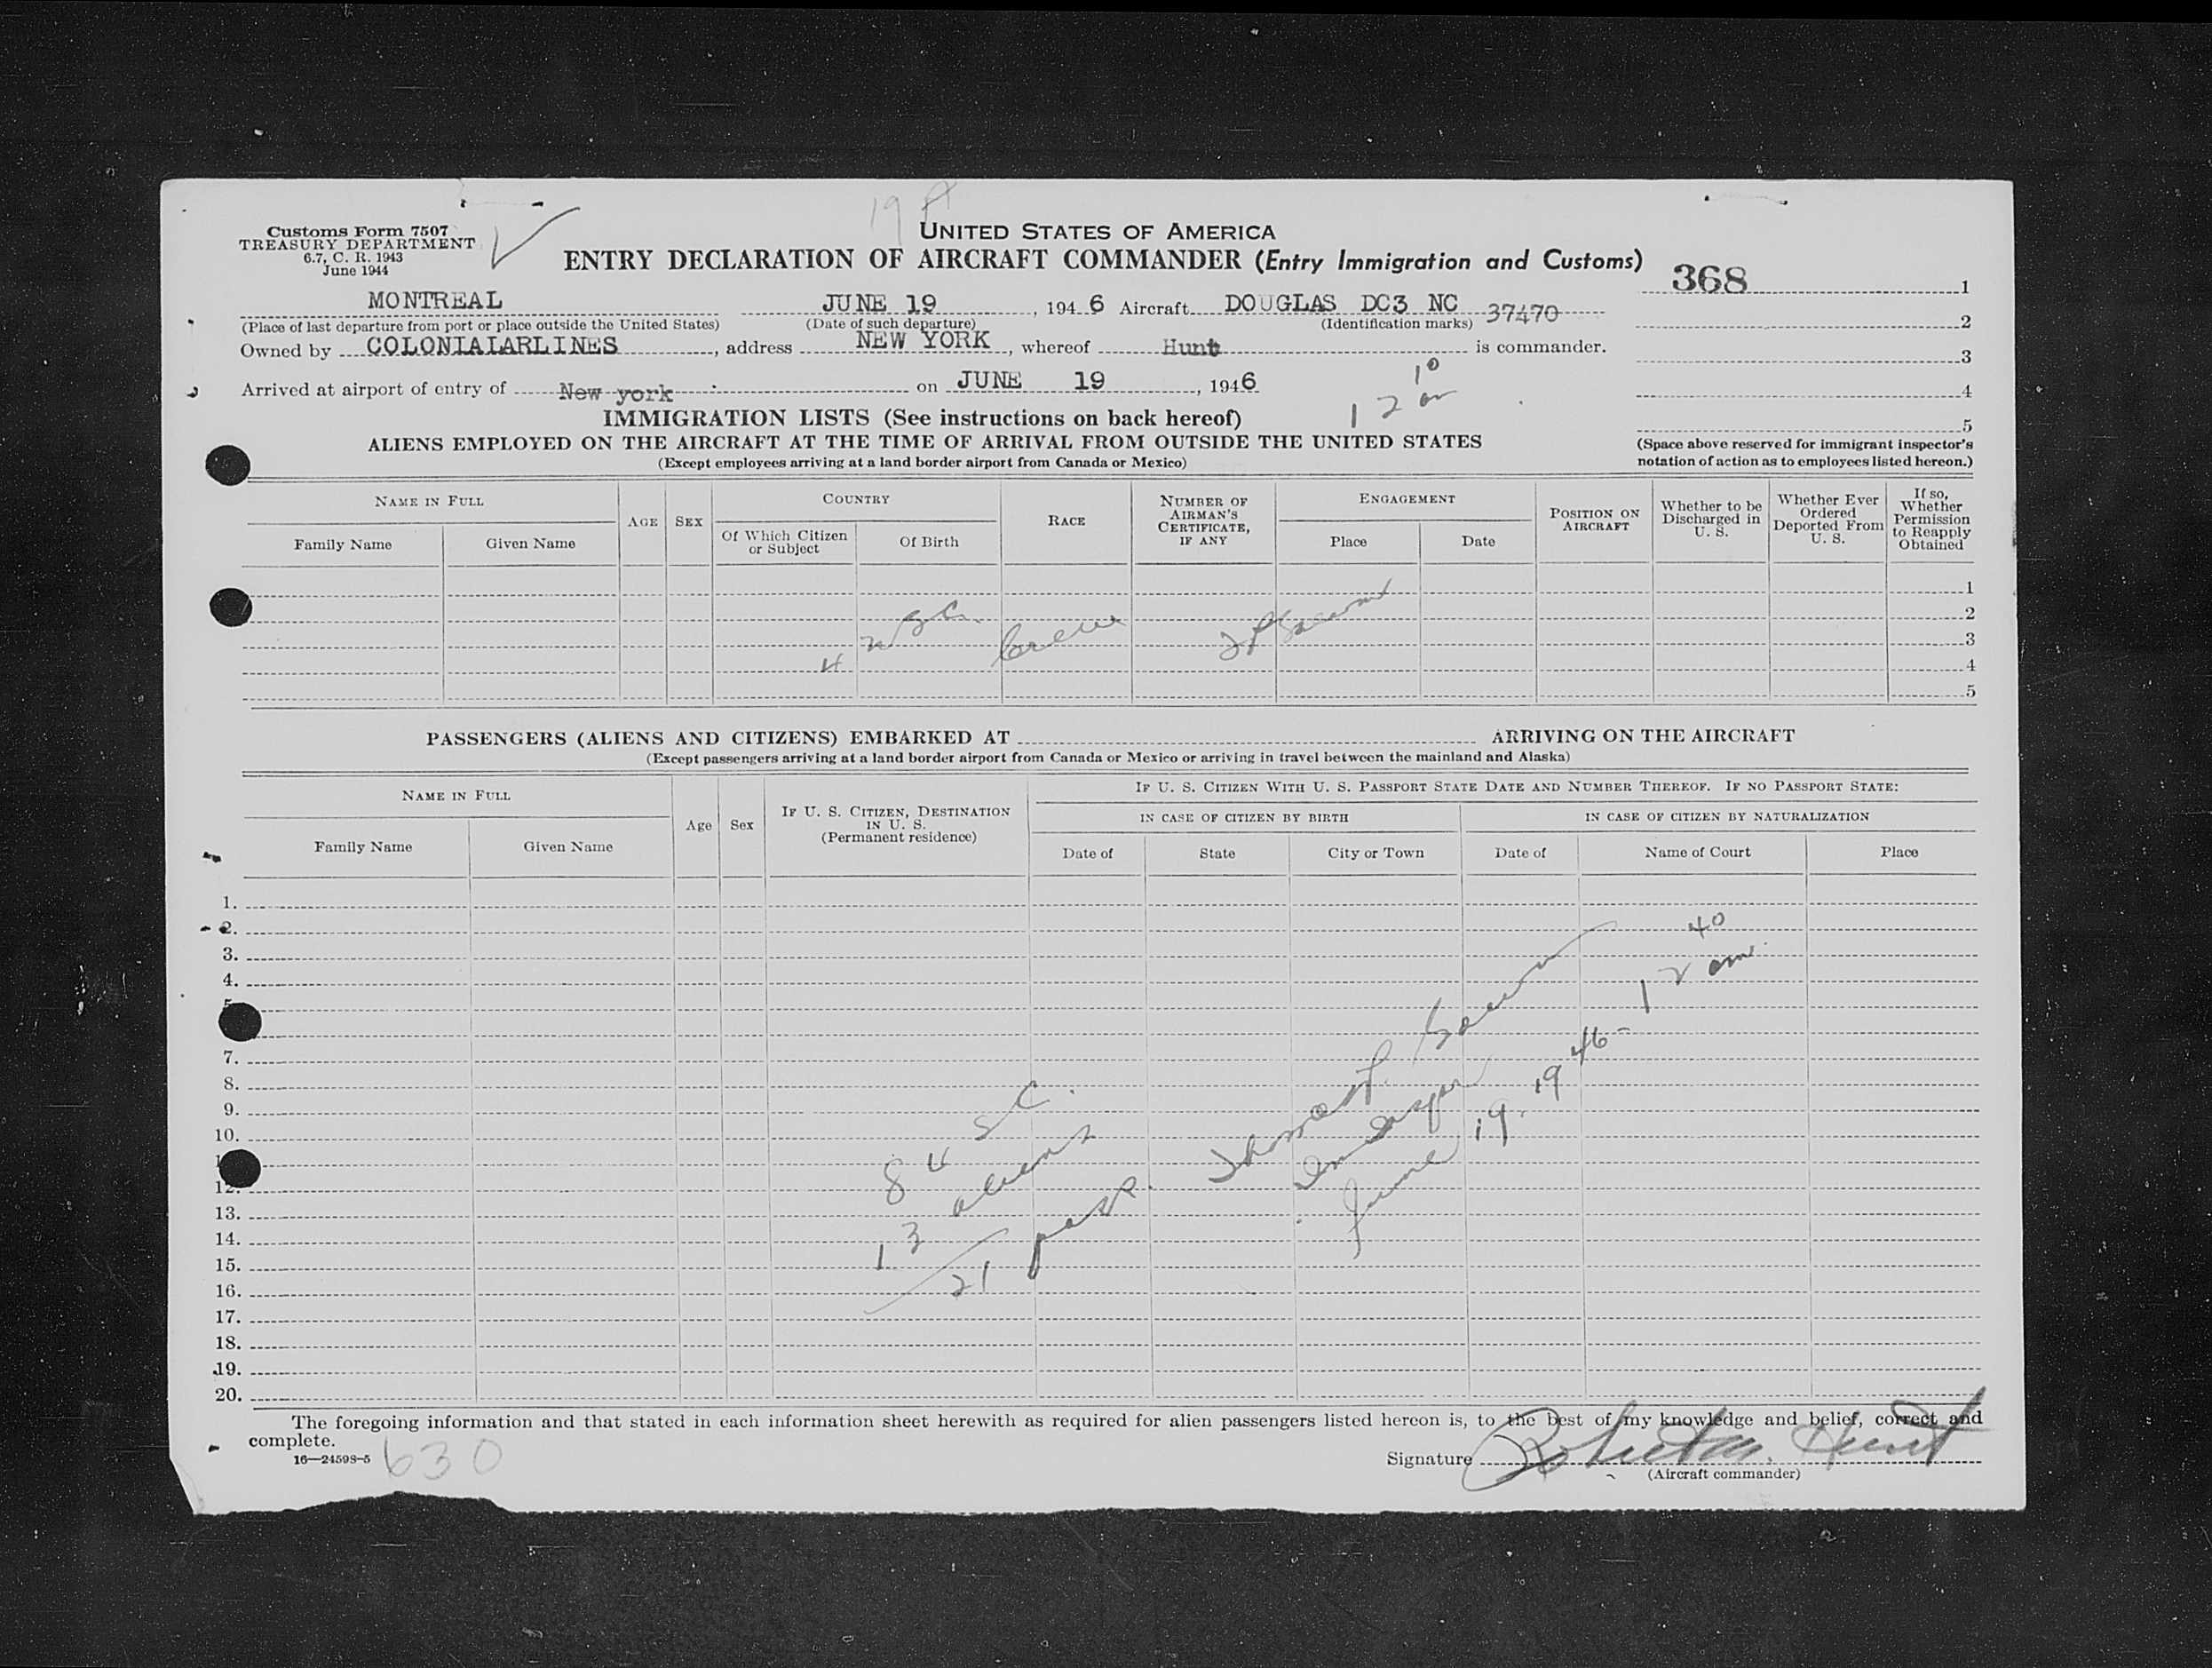 19
Customs Form 7507
TREASURY DEPARTMENT
6.7, C. R. 1943
June 1944
UNITED STATES OF AMERICA
ENTRY DECLARATION OF AIRCRAFT COMMANDER (Entry Immigration and Customs)
368 1
MONTREAL JUNE 19, 1946 Aircraft DOUGLAS DC3 NC 37470
(Place of last departure from port or place outside the United States) (Date of such departure) (Identification marks) 2
Owned by COLONIALARLINES, address NEW YORK, whereof Hunt is commander. 3
Arrived at airport of entry of New york on JUNE 19, 1946 12 10 4
IMMIGRATION LISTS (See instructions on back hereof) 5
ALIENS EMPLOYED ON THE AIRCRAFT AT THE TIME OF ARRIVAL FROM OUTSIDE THE UNITED STATES
(Except employees arriving at a land border airport from Canada or Mexico)
(Space above reserved for immigrant inspector's
notation of action as to employees listed hereon.)
NAME IN FULL AGE SEX COUNTRY RACE NUMBER OF AIRMAN'S CERTIFICATE, IF ANY ENGAGEMENT POSITION ON AIRCRAFT Whether to be Discharged in U. S. Whether Ever Ordered Deported From U. S. If so, Whether Permission to Reapply Obtained
Family Name Given Name Of Which Citizen or Subject Of Birth Place Date
1
2
3
4
5
4 Crew
PASSENGERS (ALIENS AND CITIZENS) EMBARKED AT ARRIVING ON THE AIRCRAFT
(Except passengers arriving at a land border airport from Canada or Mexico or arriving in travel between the mainland and Alaska)
NAME IN FULL Age Sex IF U. S. CITIZEN, DESTINATION IN U. S. (Permanent residence) IF U. S. CITIZEN WITH U. S. PASSPORT STATE DATE AND NUMBER THEREOF. IF NO PASSPORT STATE:
IN CASE OF CITIZEN BY BIRTH IN CASE OF CITIZEN BY NATURALIZATION
Family Name Given Name Date of State City or Town Date of Name of Court Place
1.
2.
3.
4.
5
7.
8.
9.
10.
1
12.
13.
14.
15.
16.
17.
18.
19.
20.
8
13 aliens
21 pass.
Thomas F.
June 19, 1946 - 12 40 am
The foregoing information and that stated in each information sheet herewith as required for alien passengers listed hereon is, to the best of my knowledge and belief, correct and
complete.
16—24598-5 630
Signature Robert M. Hunt
(Aircraft commander)